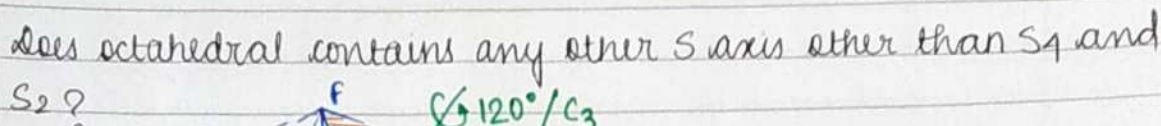 Does octahedral contains any other S axis other than S4 and
S2?
F
120°/C3